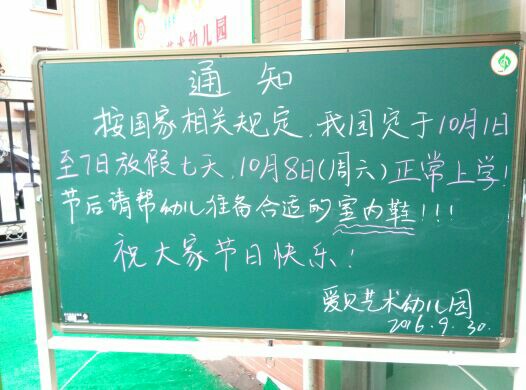 艺术幼儿园
通知
按国家相关规定,我园定于10月1日
至7日放假七天,10月8日(周六)正常上学!
节后请帮幼儿准备合适的室内鞋!!!
祝大家节日快乐!
爱贝艺术幼儿园
2016.9.30.